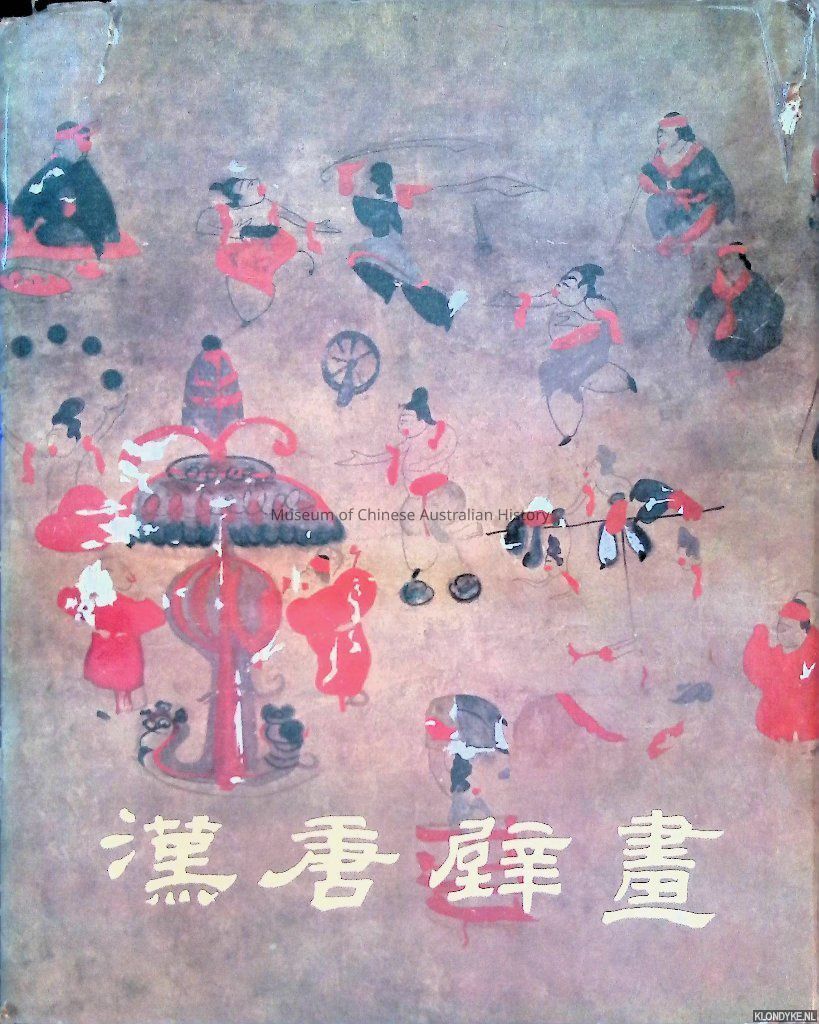 Museum of Chinese Australian History
漢唐壁畫
KLONDYKE.NL